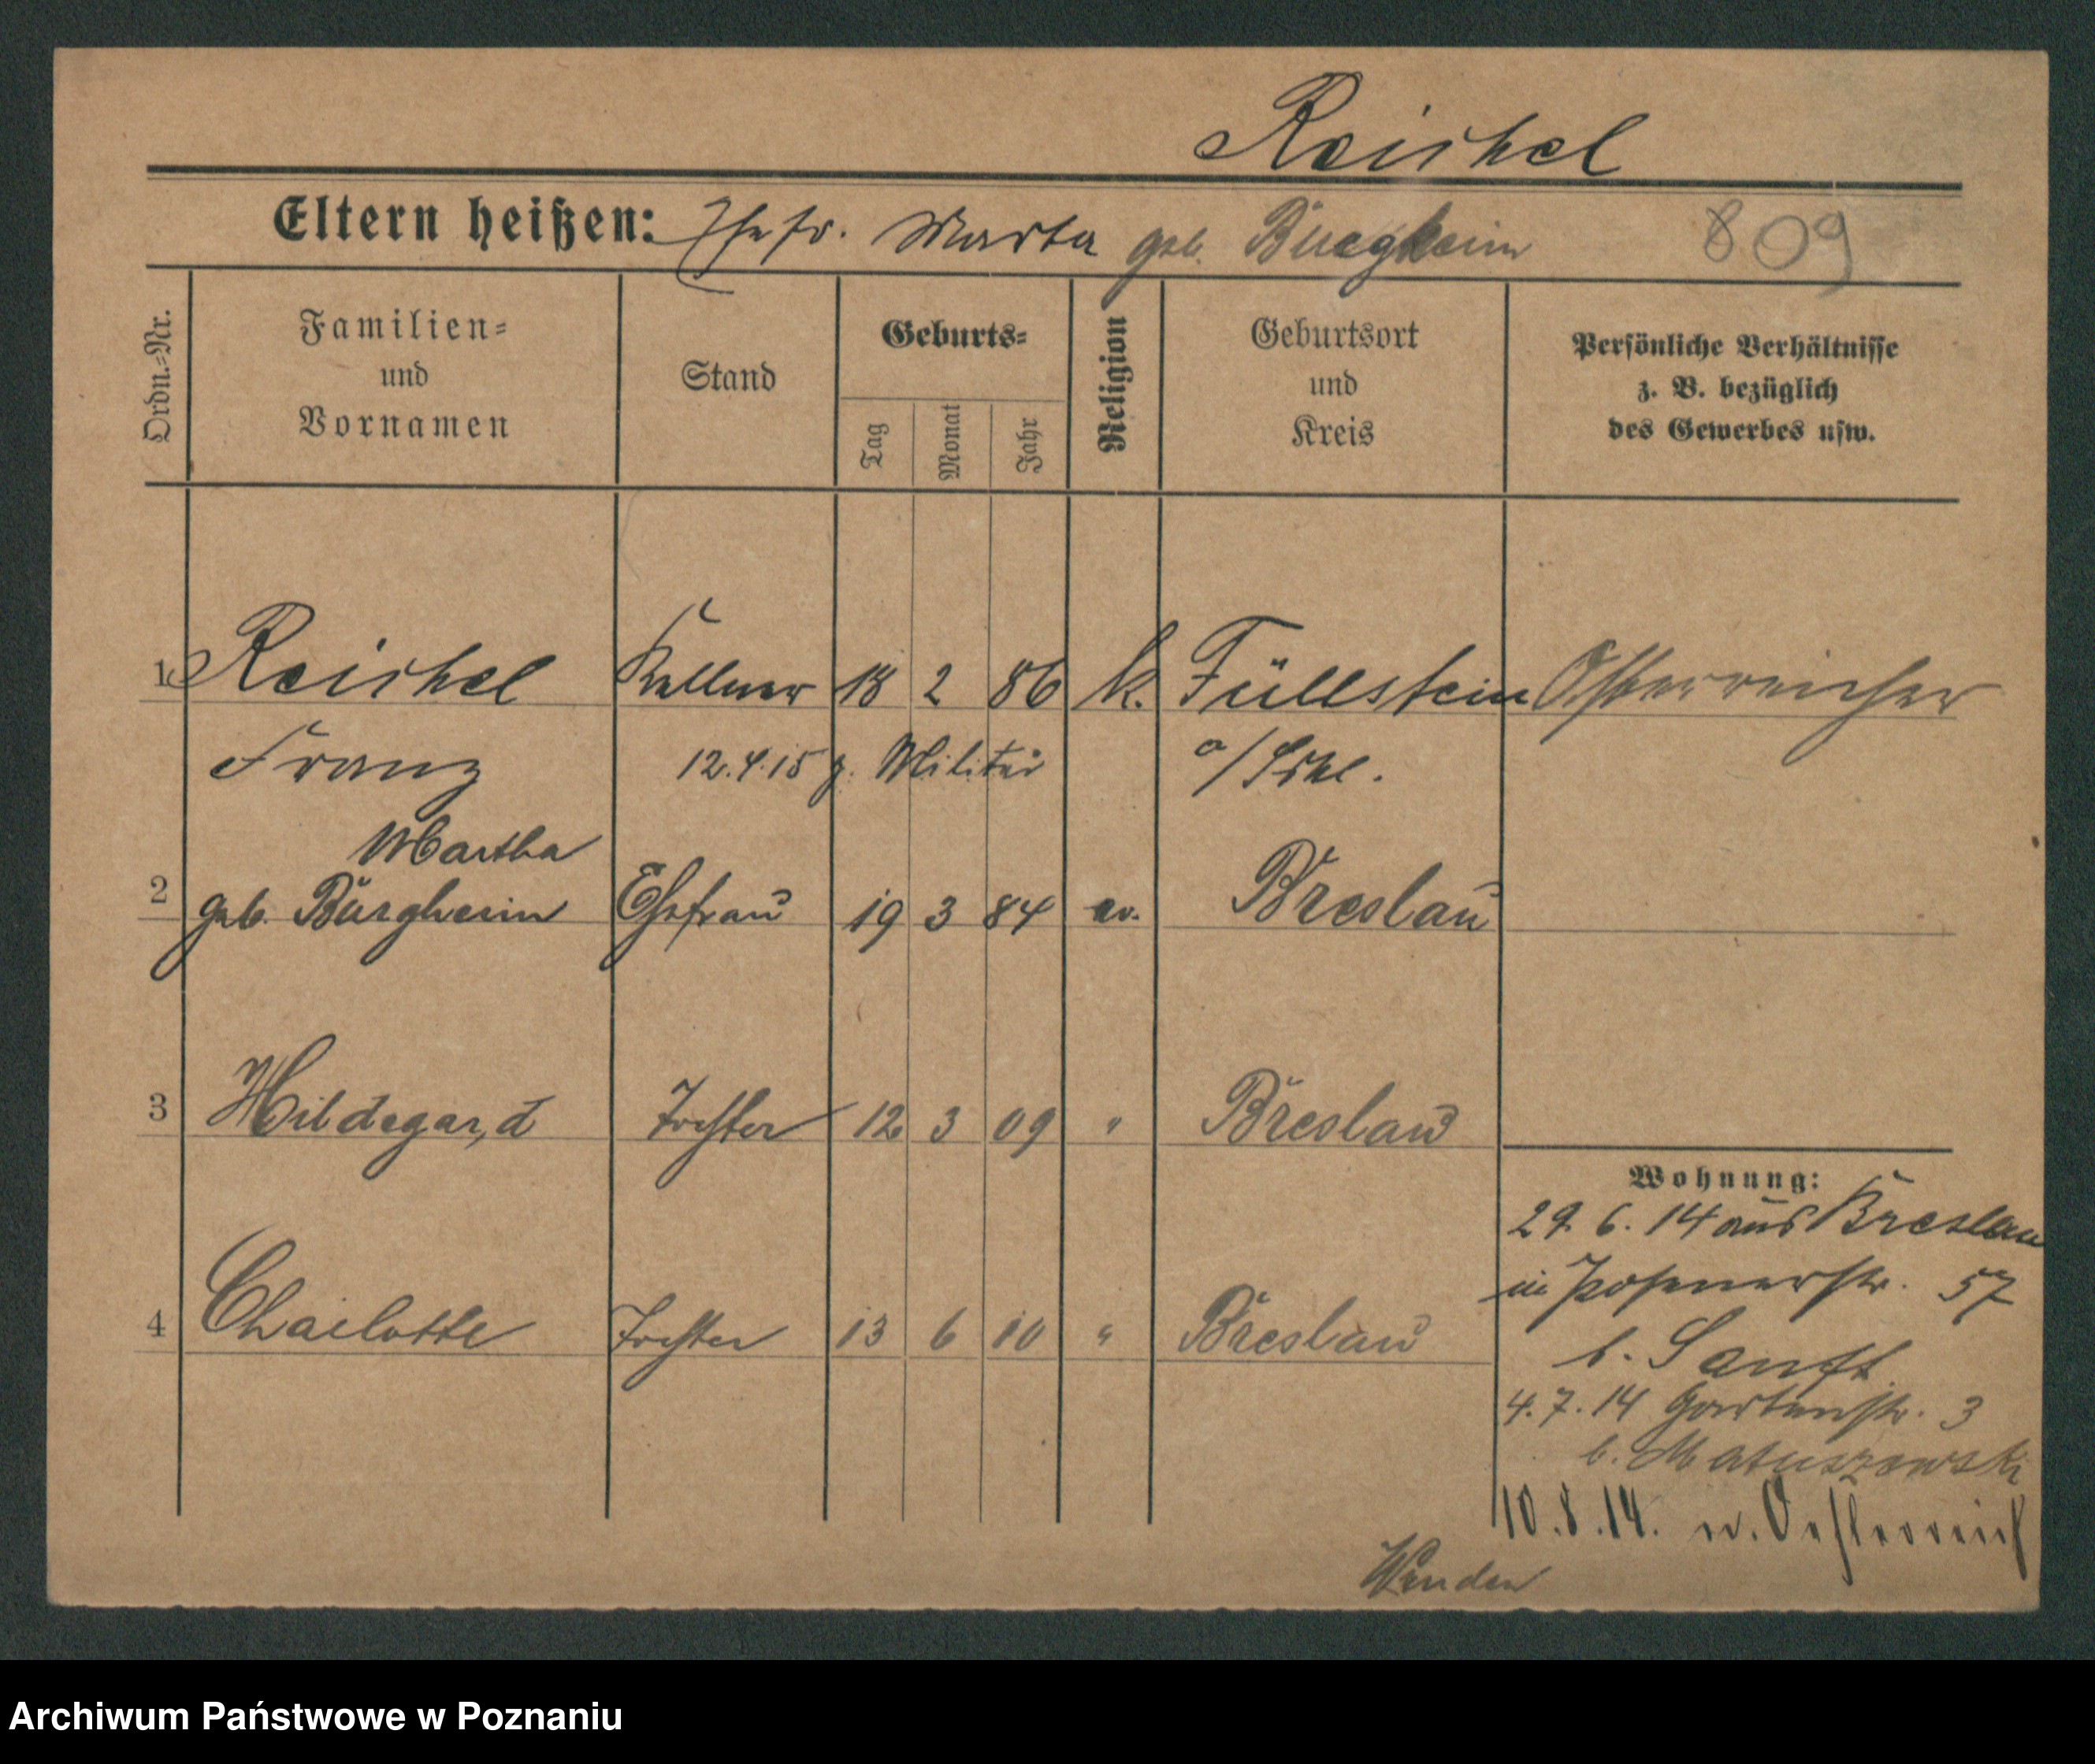 Reichel
Eltern heißen: Ehefr. Marta geb. Burgheim 809
Ordn.=Nr.
Familien=
und
Vornamen
Stand
Geburts=
Tag
Monat
Jahr
Religion
Geburtsort
und
Kreis
Persönliche Verhältnisse
z. B. bezüglich
des Gewerbes usw.
1 Reichel Kellner 18 2 86 k. Füllstein Österreicher
Franz 12.4.15 z. Militär
Martha
2 geb. Burgheim Ehefrau 19 3 84 ev. Breslau
3 Hildegard Tochter 12 3 09 " Breslau
4 Charlotte Tochter 13 6 10 " Breslau
Wohnung:
29. 6. 14 aus Breslau
in Posenerstr. 57
b. Sanft
4.7.14 Gartenstr. 3
b. Matuszewski
10.8.14. n. Oesterreich
Wenden
Archiwum Państwowe w Poznaniu